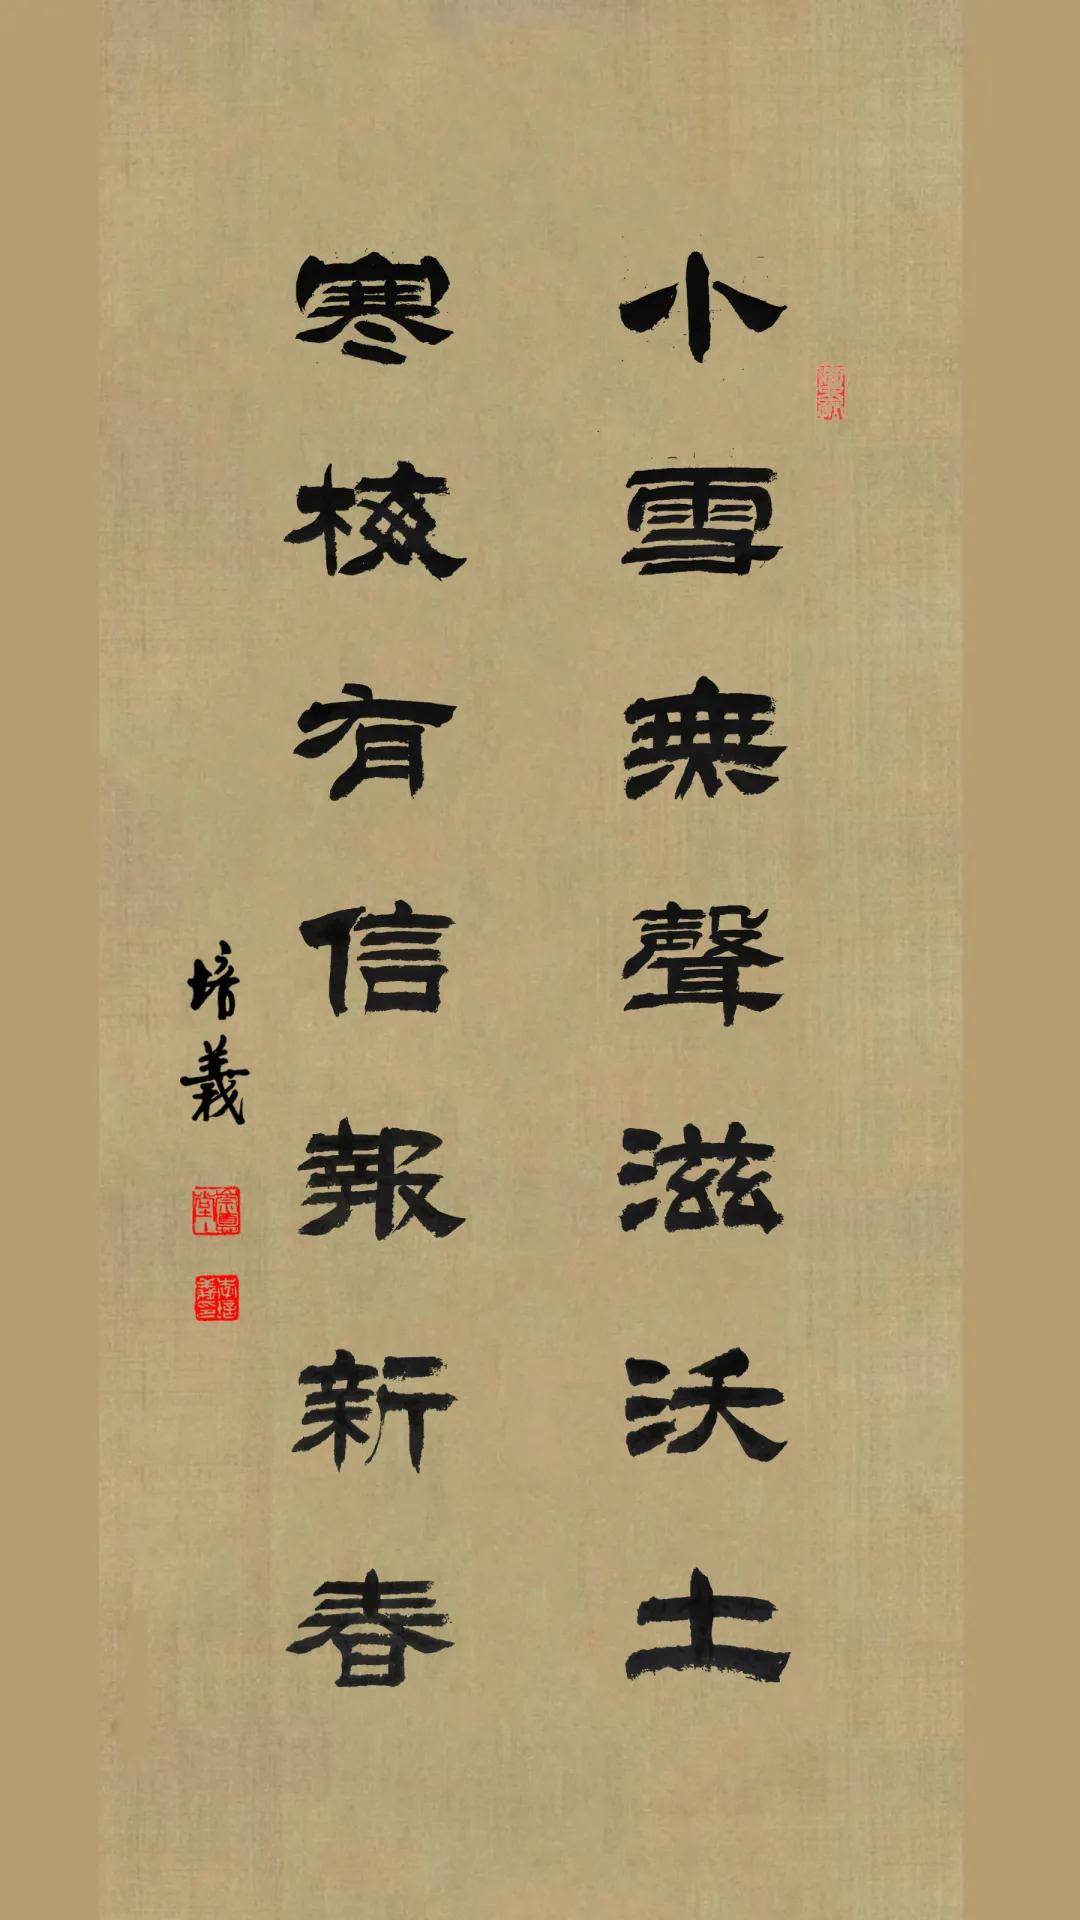 小雪無聲滋沃土
寒梅有信報新春
培義